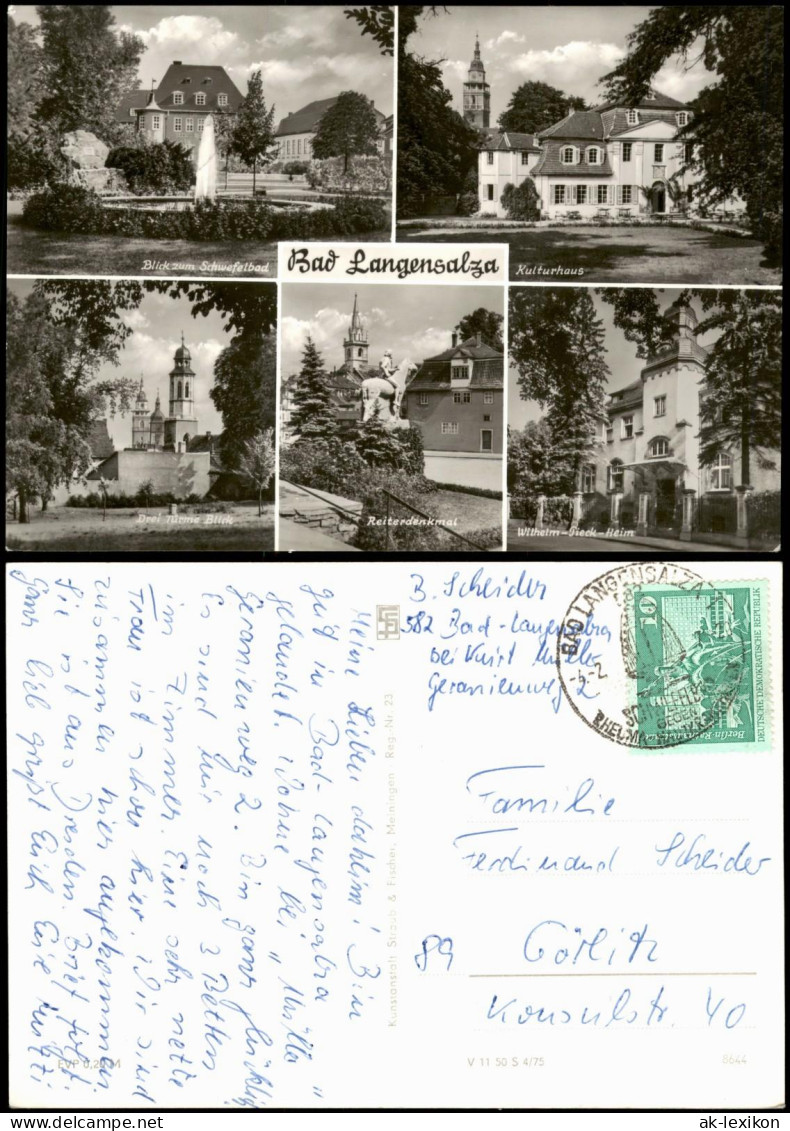 Blick zum Schwefelbad
Bad Langensalza
Kulturhaus
Drei Türme Blick
Reiterdenkmal
Wilhelm-Pieck-Heim
B. Scheider
582 Bad-Langensalza
bei Kurt
Geranienweg 2
BAD LANGENSALZA
-2
SCHWEFELBAD
RHEUMA
10
DEUTSCHE DEMOKRATISCHE REPUBLIK
Berlin
Familie
Ferdinand Scheider
89 Görlitz
Konsulstr. 40
V 11 50 S 4/75
8644
EVP 0,20 M
Kunstanstalt Straub & Fischer, Meiningen Reg.-Nr. 23
Meine Lieben daheim! Bin
gut in Bad-Langensalza
gelandet. Wohne bei "
Geranienweg 2. Bin ganz glücklich
Es sind nur noch 3 Betten
im Zimmer. Eine sehr nette
Frau ist schon hier. Wir sind
zusammen hier angekommen.
Sie ist aus Dresden. Brief folgt.
Ganz lieb grüßt Euch Eure Mutti
ak-lexikon
© ak-lexikon.com